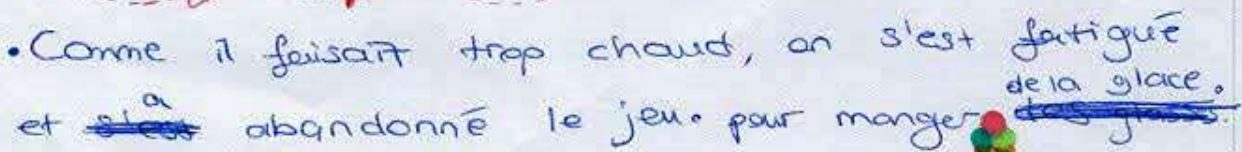 • Comme il faisait trop chaud, on s'est fatigué
et a abandonné le jeu. pour manger de la glace.